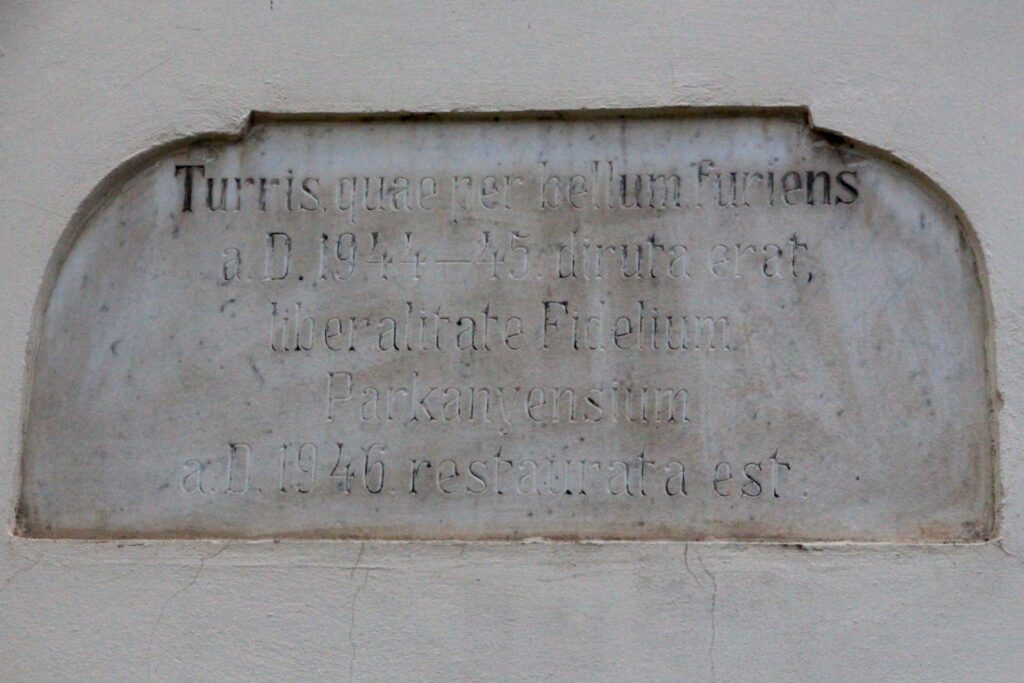 Turris, quae per bellum furiens
a. D. 1944–45. diruta erat,
liberalitate Fidelium
Parkanyensium
a. D. 1946. restaurata est.